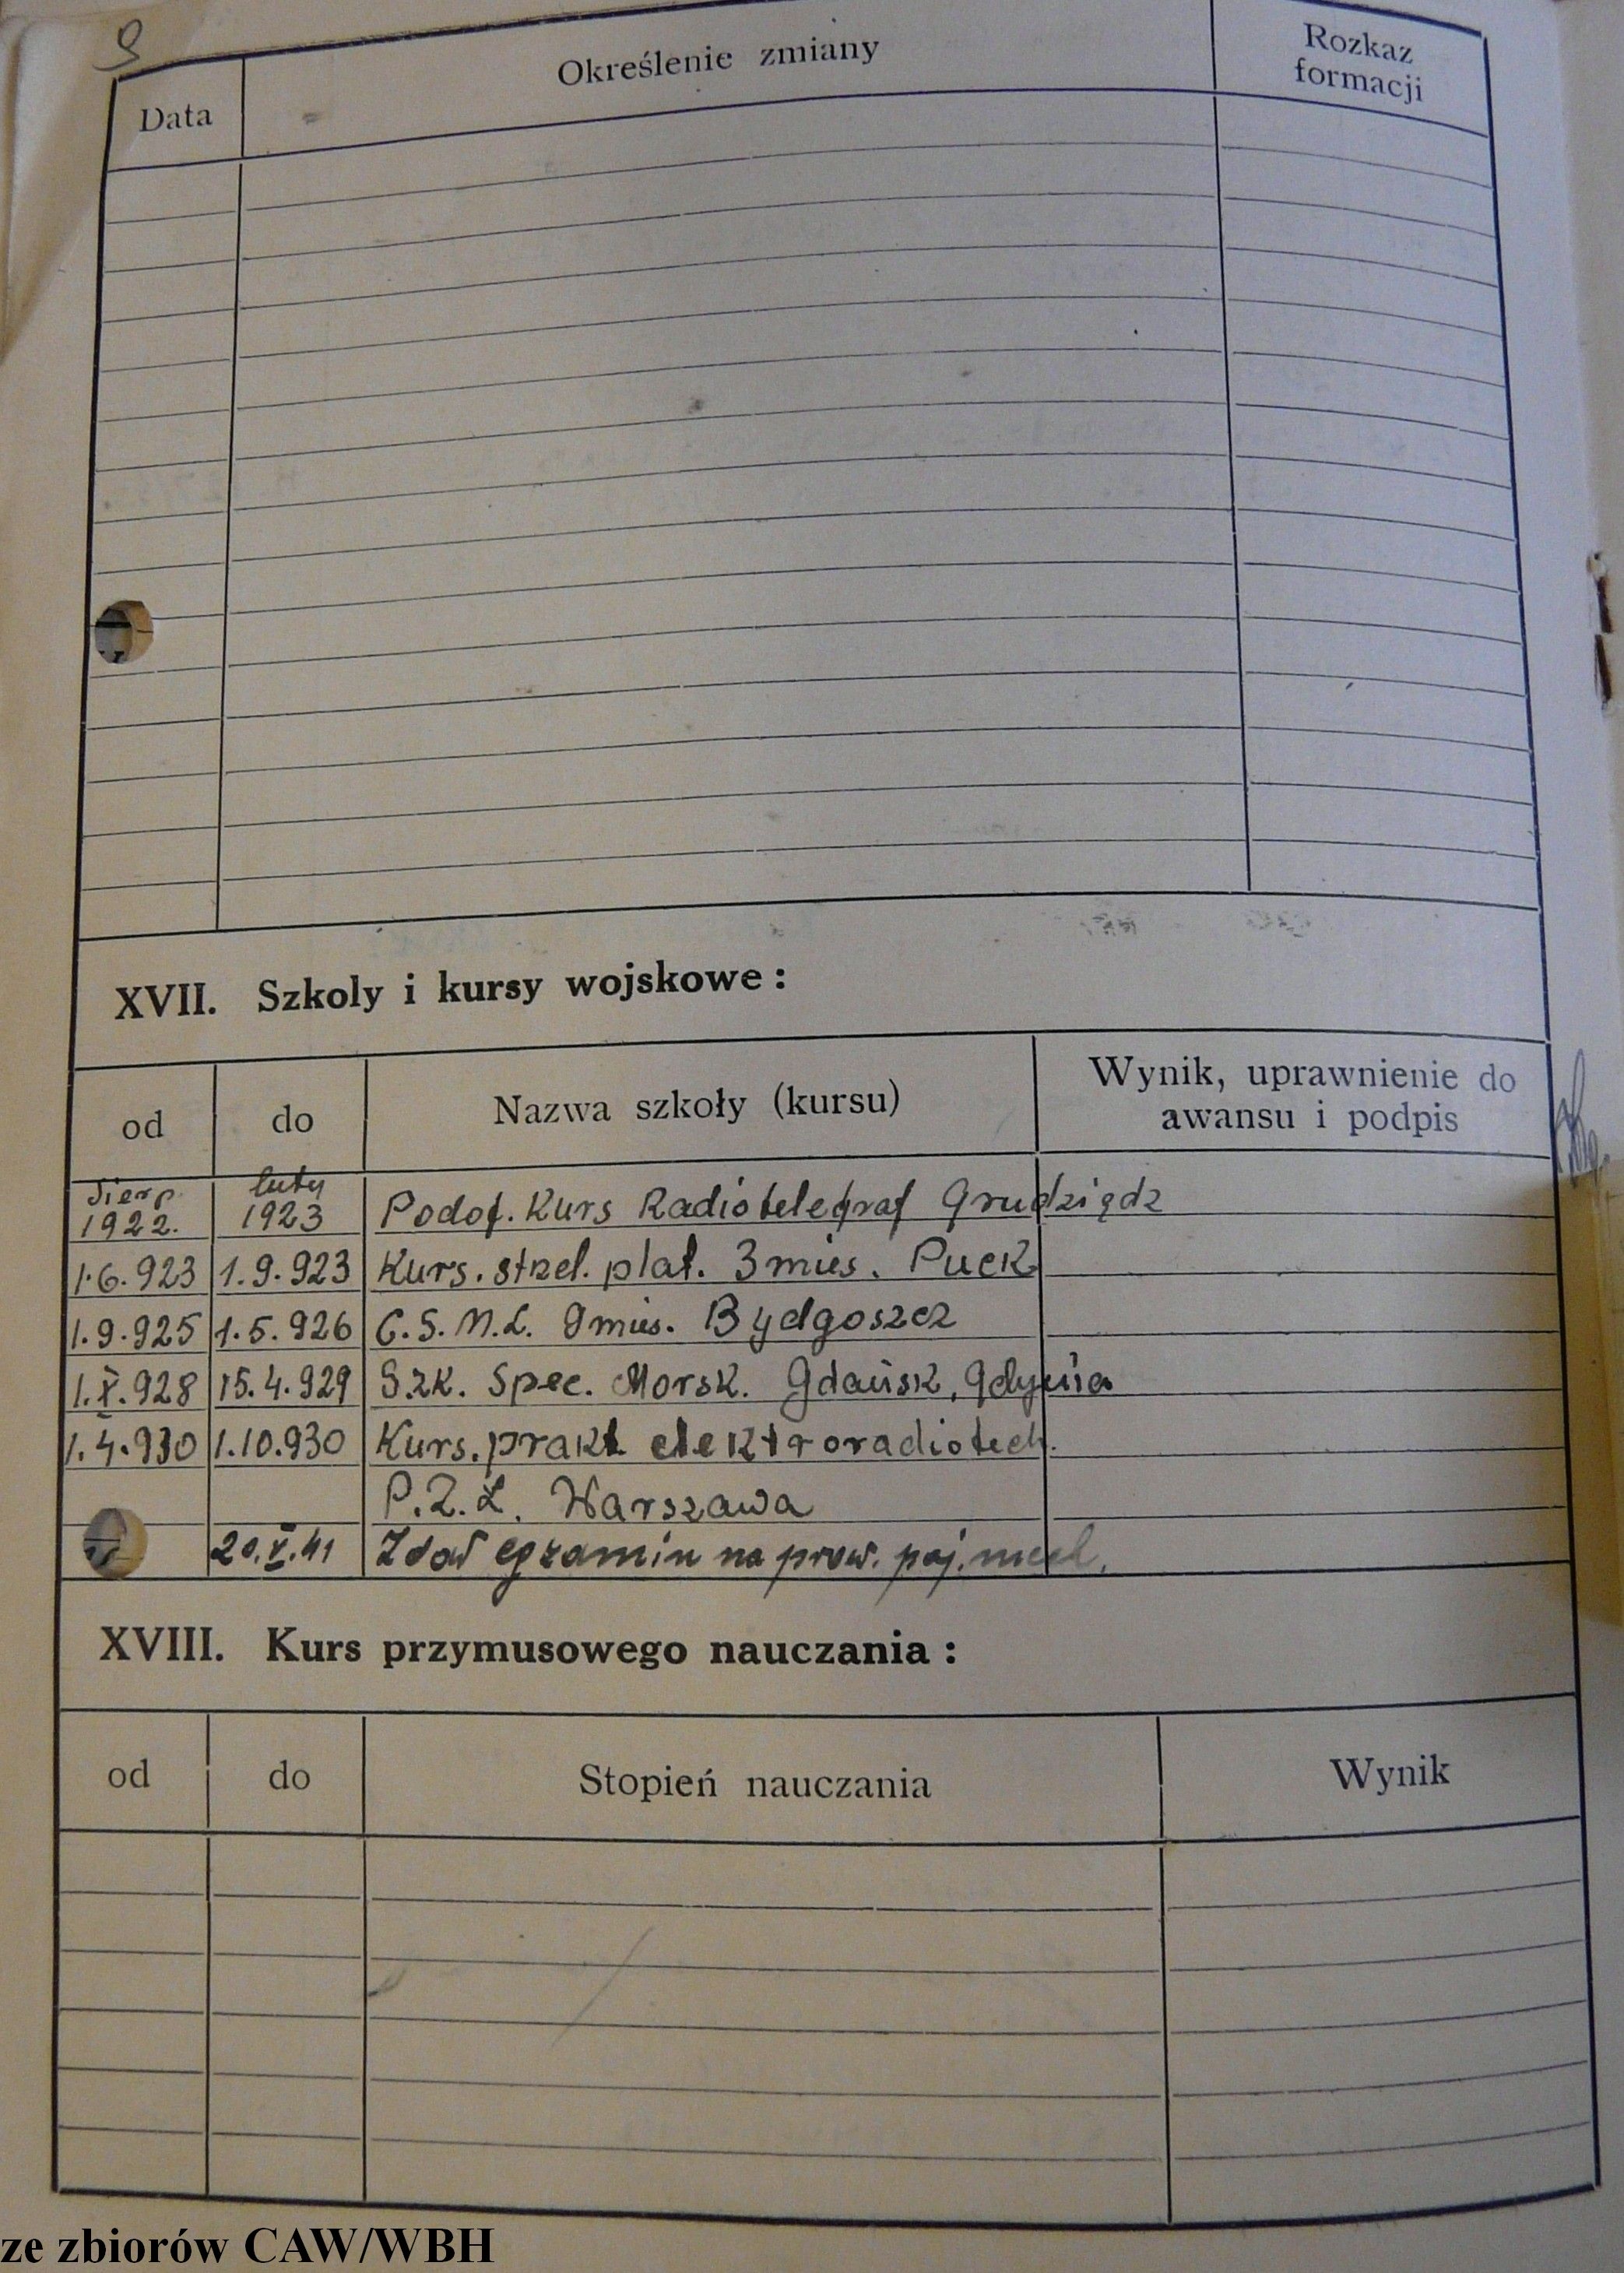 9
Data Określenie zmiany Rozkaz formacji
XVII. Szkoly i kursy wojskowe :
od do Nazwa szkoły (kursu) Wynik, uprawnienie do awansu i podpis
Sierp. 1922. luty 1923 Podof. Kurs Radiotelegraf Grudziądz
1.6.923 1.9.923 Kurs. strzel. płat. 3 mies. Puck
1.9.925 1.5.926 C.S.M.L. 9 mies. Bydgoszcz
1.X.928 15.4.929 Szk. Spec. Morsk. Gdańsk, Gdynia
1.4.930 1.10.930 Kurs. prakt elektroradiotech.
P.Z.L. Warszawa
20.V.41 Zdał egzamin na prow. poj. mech.
XVIII. Kurs przymusowego nauczania :
od do Stopień nauczania Wynik
ze zbiorów CAW/WBH